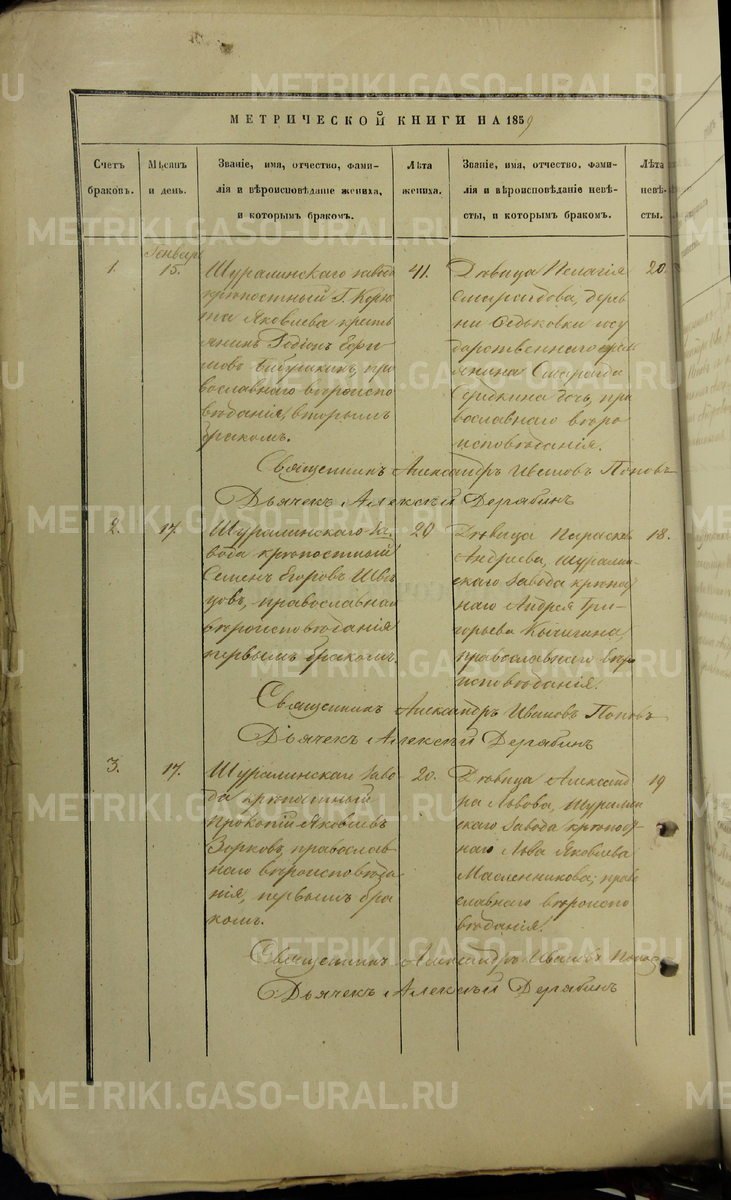 МЕТРИЧЕСКОЙ КНИГИ НА 1859
Счетъ браковъ.
Мѣсяцъ и день.
Званіе, имя, отчество, фами-
лія и вѣроисповѣданіе жениха,
и которымъ бракомъ.
Лѣта жениха.
Званіе, имя, отчество, фами-
лія и вѣроисповѣданіе невѣ-
сты, и которымъ бракомъ.
Лѣта невѣ-
сты.
Генварь
1.
15.
Шуралинскаго завода
крѣпостный Г. Кор
та Яковлева крестья
янинъ Родіонъ Ефи
мовъ Бабушкинъ, пра
вославнаго вѣроиспо
вѣданія, вторымъ
бракомъ.
41.
Дѣвица Пелагія
Смарагдова, дерев
ни Федьковки госу
дарственнаго крест
янина Смарагда
Середкина дочь, пра
вославнаго вѣро
исповѣданія.
20.
Священникъ Александръ Ивановъ Поповъ
Дьячекъ Алексѣй Дерябинъ
2.
17.
Шуралинскаго За-
вода крѣпостный
Семенъ Егоровъ Шве
цовъ, православнаго
вѣроисповѣданія
первымъ бракомъ.
20
Дѣвица Параске
Андреева, Шуралин-
скаго Завода крѣпост
наго Андрея Гри-
горьева Кычигина,
православнаго вѣро
исповѣданія.
18.
Священникъ Александръ Ивановъ Поповъ
Дьячекъ Алексѣй Дерябинъ
3.
17.
Шуралинскаго Заво-
да крѣпостный
Прокопій Яковлевъ
Зорковъ, православ
наго вѣроисповѣда
нія, первымъ бра
комъ.
20.
Дѣвица Александ
ра Львова, Шуралин
скаго Завода крѣпост
наго Льва Яковлева
Масленникова, право
славнаго вѣроиспо
вѣданія.
19
Священникъ Александръ Ивановъ Поповъ
Дьячекъ Алексѣй Дерябинъ
METRIKI.GASO-URAL.RU